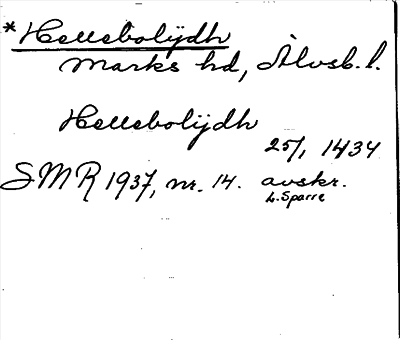 *Hellebolijdh
Marks hd, Älvsb. l.
Hellebolijdh
25/1 1434
SMR 1937, nr. 14. avskr.
L. Sparre